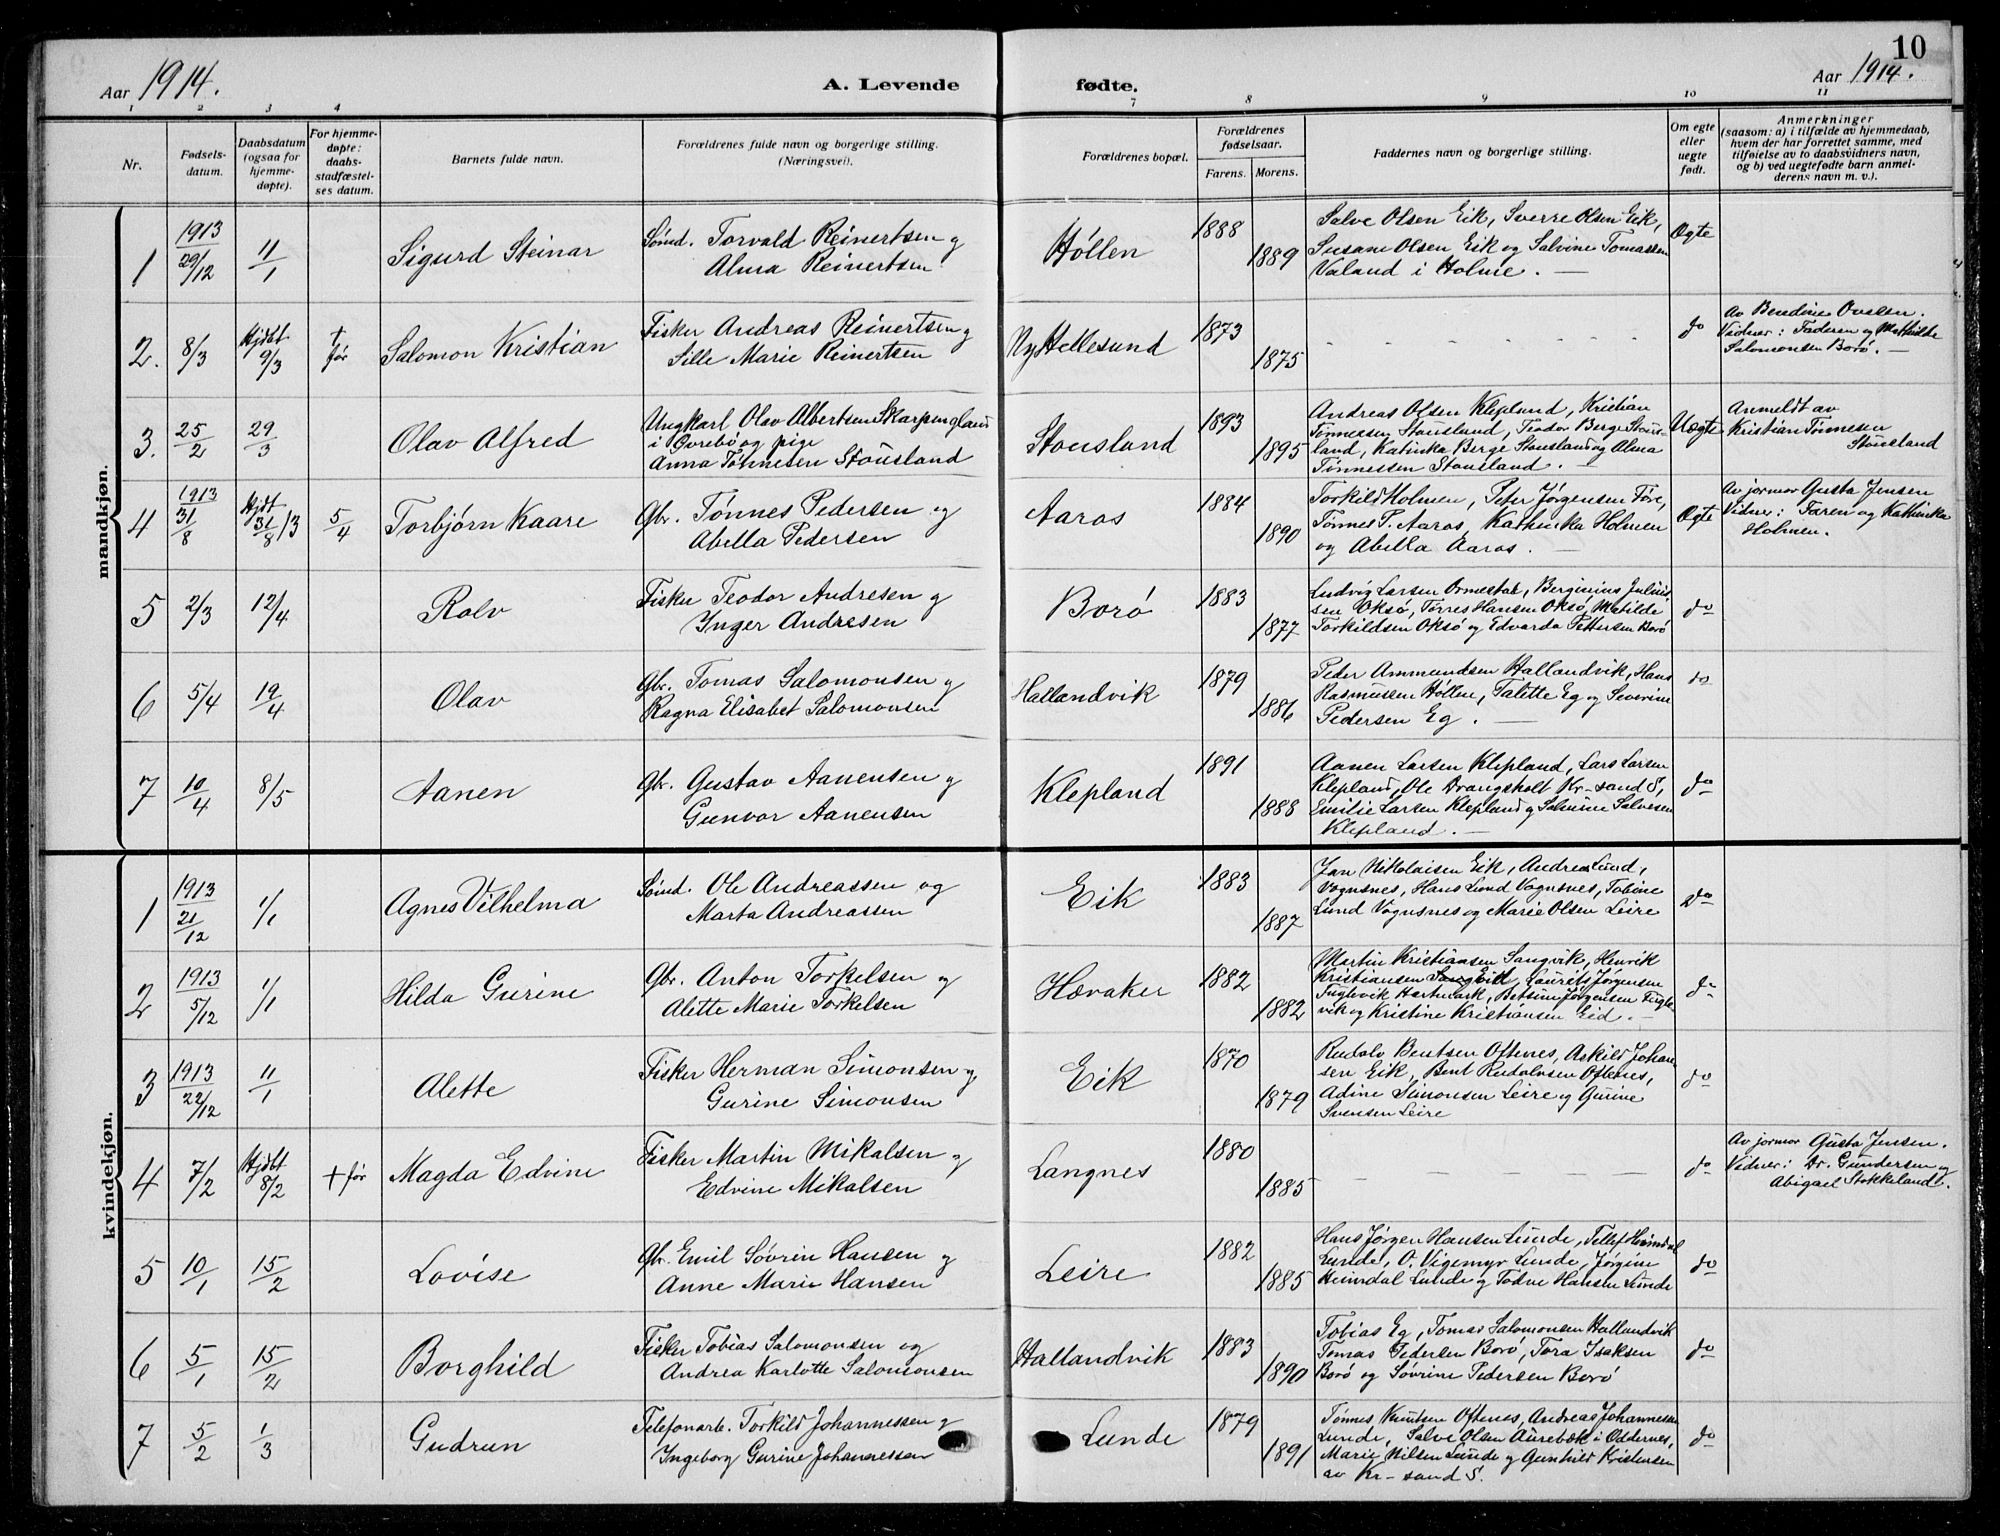 10
Aar 1914.
A. Levende fødte.
Aar 1914.
1 2 3 4 7 8 9 10 11
Nr.
Fødsels-
datum.
Daabsdatum
(ogsaa for
hjemme-
døpte).
For hjemme-
døpte:
daabs-
stadfæstel-
ses datum.
Barnets fulde navn.
Forældrenes fulde navn og borgerlige stilling.
(Næringsvei).
Forældrenes bopæl.
Forældrenes
fødselsaar.
Farens. Morens.
Faddernes navn og borgerlige stilling.
Om egte
eller
uegte
født.
Anmerkninger
(saasom: a) i tilfælde av hjemmedaab,
hvem der har forrettet samme, med
tilføielse av to daabsvidners navn,
og b) ved uegtefødte barn anmel-
derens navn m. v.).
mandkjøn.
1
1913
29/12
11/1
Sigurd Steinar
Sømd. Torvald Reinertsen og
Alma Reinertsen
Høllen
1888
1889
Salve Olsen Eik, Sverre Olsen Eik,
Susane Olsen Eik og Salvine Tomassen
Valand i Holme. —
Ægte
2.
8/3
Hjdbt
9/3
†
før
Salomon Kristian
Fisker Andreas Reinertsen og
Sille Marie Reinertsen
Ny Hellesund
1873
1875
do
Av Bendine Ovesen.
Vidner: Faderen og Mathilde
Salomonsen Borø. —
3.
25/2
29/3
Olav Alfred
Ungkarl Olav Albertsen Skarpengland
i Øvrebø og pige
Anna Tønnesen Stousland
Stousland
1893
1895
Andreas Olsen Klepland, Kristian
Tønnessen Stousland, Teodor Berge Stous-
land, Katinka Berge Stousland og Alma
Tønnessen Stousland. —
Uægte
Anmeldt av
Kristian Tønnesen
Stousland
4
1913
31/8
Hjdt
31/8 13
5/4
Torbjørn Kaare
Gbr. Tønnes Pedersen og
Abella Pedersen
Aaros
1884
1890
Torkild Holmen, Peter Jørgensen Føre,
Tønnes P. Aaros, Kathinka Holmen
og Abella Aaros. —
Ægte
Av jormor Gusta Jensen
Vidner: Faren og Kathinka
Holmen.
5
2/3
12/4
Rolv
Fisker Teodor Andresen og
Inger Andresen
Borø
1883
1877
Ludvig Larsen Ormestad, Berginius Julius-
sen Oksø, Tørres Hansen Oksø, Matilde
Torkildsen Oksø og Edvarda Pettersen Borø
do
6
5/4
19/4
Olav
Gbr. Tomas Salomonsen og
Ragna Elisabet Salomonsen
Hallandvik
1879
1886
Peder Ammundsen Hallandvik, Hans
Rasmussen Høllen, Talette Eg og Severine
Pedersen Eg. —
do
7
10/4
8/5
Aanen
Gbr. Gustav Aanensen og
Gunvor Aanensen
Klepland
1891
1888
Aanen Larsen Klepland, Lars Larsen
Klepland, Ole Drangsholt Kr-sand S,
Emilie Larsen Klepland og Salvine Salvesen
Klepland. —
do
kvindekjøn.
1
1913
21/12
1/1
Agnes Vilhelma
Sømd. Ole Andreassen og
Marta Andreassen
Eik
1883
1887
Jan Nikolaisen Eik, Andreas Lund,
Vognsnes, Hans Lund Vognsnes, Tobine
Lund Vognsnes og Marie Olsen Leire
do
2
1913
5/12
1/1
Hilda Gurine
Gbr. Anton Torkelsen og
Alette Marie Torkelsen
Hævaker
1882
1882
Martin Kristiansen Sangvik, Henrik
Kristiansen Eid, Laurits Jørgensen
Fuglevik Hartmark, Betsine Jørgensen Fugle-
vik og Kristine Kristiansen Eid. —
do
3
1913
22/12
11/1
Alette
Fisker Herman Simonsen og
Gurine Simonsen
Eik
1870
1879
Rudolv Bentsen Oftenes, Askild Johan-
sen Eik, Bent Rudolvsen Oftenes,
Adine Simonsen Leire og Gurine
Svensen Leire
do
4
7/2
Hjdbt
8/2
† før
Magda Edvine
Fisker Martin Mikalsen og
Edvine Mikalsen
Langnes
1880
1885
do
Av jormor Gusta Jensen.
Vidner: Dr. Gundersen og
Abigael Stokkeland.
5
10/1
15/2
Lovise
Gbr. Emil Søvrin Hansen og
Anne Marie Hansen
Leire
1882
1885
Hans Jørgen Hansen Lunde, Tellef Heimdal
Lunde, O. Vigemyr Lunde, Jørgine
Heimdal Lunde og Todne Hansen Lunde
do
6
5/1
15/2
Borghild
Fisker Tobias Salomonsen og
Andrea Karlotte Salomonsen
Hallandvik
1883
1890
Tobias Eg, Tomas Salomonsen Hallandvik
Tomas Pedersen Borø, Tora Isaksen
Borø og Søvrine Pedersen Borø
do
7
5/2
1/3
Gudrun
Telefonarb. Torkild Johannessen og
Ingeborg Gurine Johannessen
Lunde
1879
1891
Tønnes Knutsen Oftenes, Andreas Johannessen
Lunde, Salve Olsen Aurebæk i Oddernes,
Marie Nilsen Lunde og Gunhild Kristensen
av Kr-sand S.
do